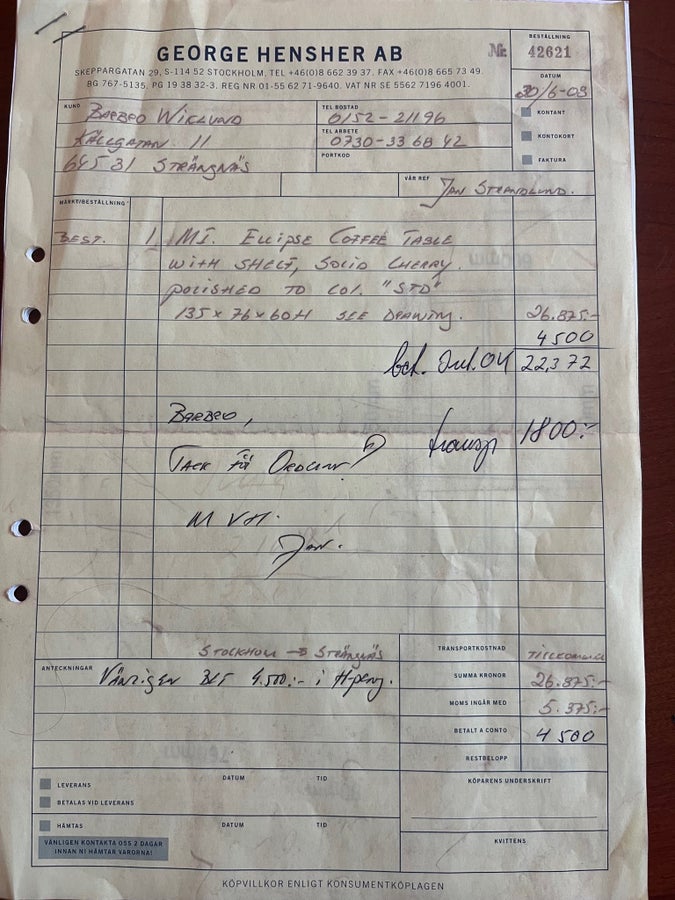 GEORGE HENSHER AB
SKEPPARGATAN 29, S-114 52 STOCKHOLM, TEL +46(0)8 662 39 37. FAX +46(0)8 665 73 49.
BG 767-5135. PG 19 38 32-3. REG NR 01-55 62 71-9640. VAT NR SE 5562 7196 4001.
Nr.
BESTÄLLNING
42621
DATUM
30/6-03
KUND
BARBRO WIKLUND
KÄLLGATAN 11
645 31 STRÄNGNÄS
TEL BOSTAD
0152-21196
TEL ARBETE
0730-33 68 42
PORTKOD
KONTANT
KONTOKORT
FAKTURA
VÅR REF
JAN STRANDLUND.
MÄRKT/BESTÄLLNING
BEST. 1 MI. ELLIPSE COFFEE TABLE
WITH SHELF, SOLID CHERRY.
POLISHED TO COL. "STD"
135 x 76 x 60H SEE DRAWING. 26.875:-
4500
bet. Jul. 04 22,372
BARBRO,
transp 1800:-
TACK FÖR ORDERN!
M V H.
JAN.
STOCKHOLM → STRÄNGNÄS
TRANSPORTKOSTNAD TILLKOMMER
ANTECKNINGAR
VÄNLIGEN BET 4.500:- i H-peng.
SUMMA KRONOR 26.875:-
MOMS INGÅR MED 5.375:-
BETALT A CONTO 4500
RESTBELOPP
LEVERANS DATUM TID
BETALAS VID LEVERANS
KÖPARENS UNDERSKRIFT
HÄMTAS DATUM TID
KVITTENS
VÄNLIGEN KONTAKTA OSS 2 DAGAR
INNAN NI HÄMTAR VARORNA!
KÖPVILLKOR ENLIGT KONSUMENTKÖPLAGEN